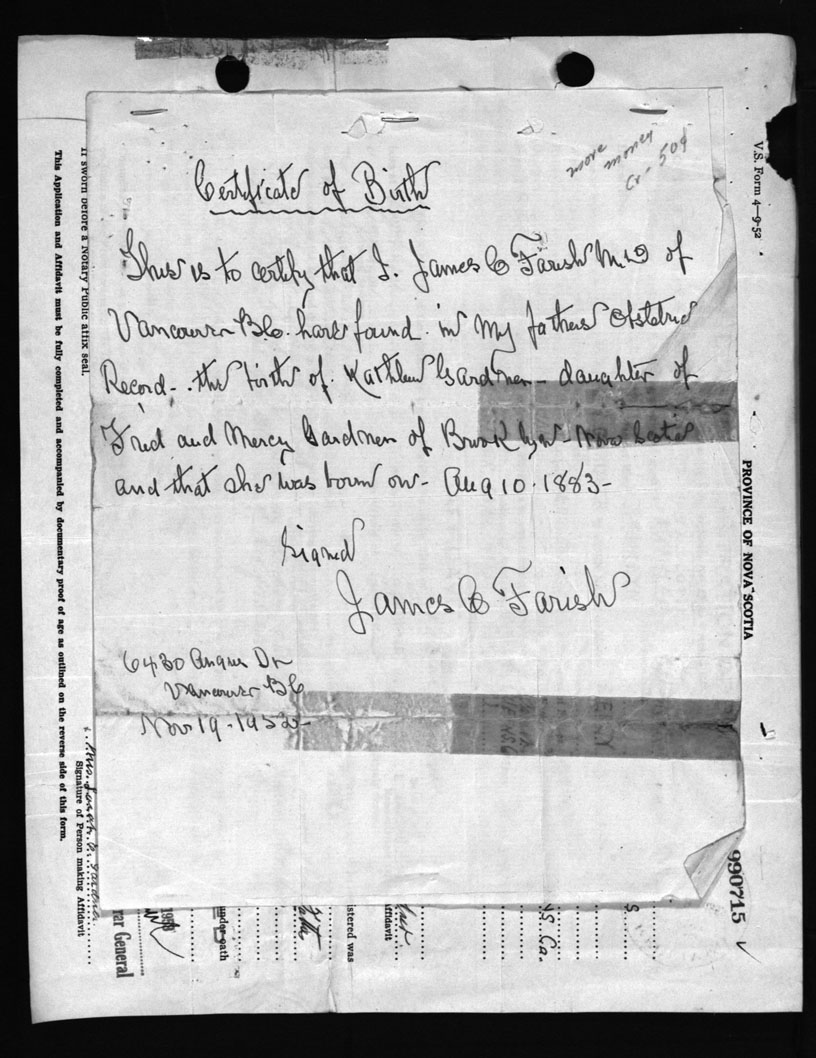 more
money
Certificate of Birth
This is to certify that I. James C Farish M.D of
Vancouver B.C. have found in my fathers Obstetric
Record - the birth of Kathleen Gardner - daughter of
Fred and Mercy Gardner of Brooklyn - Nova Scotia
and that she was born on - Aug 10. 1883 -
Signed
James C Farish
6430 Angus Dr
Vancouver BC
Nov 19 - 1952 -
V.S. Form 4—9-52
PROVINCE OF NOVA SCOTIA
990715
If sworn before a Notary Public affix seal.
This Application and Affidavit must be fully completed and accompanied by documentary proof of age as outlined on the reverse side of this form.
Mrs. Sarah
Signature of Person making Affidavit
rar General
under oath
stered was
ffidavit
N.S. Ca.
S.